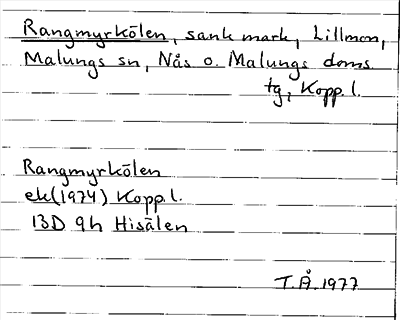 Rangmyrkölen, sank mark, Lillmon,
Malungs sn, Nås o. Malungs doms
tg, Kopp. l.
Rangmyrkölen
ek(1974) Kopp. l.
13D 9h Hisälen
T.Å. 1977